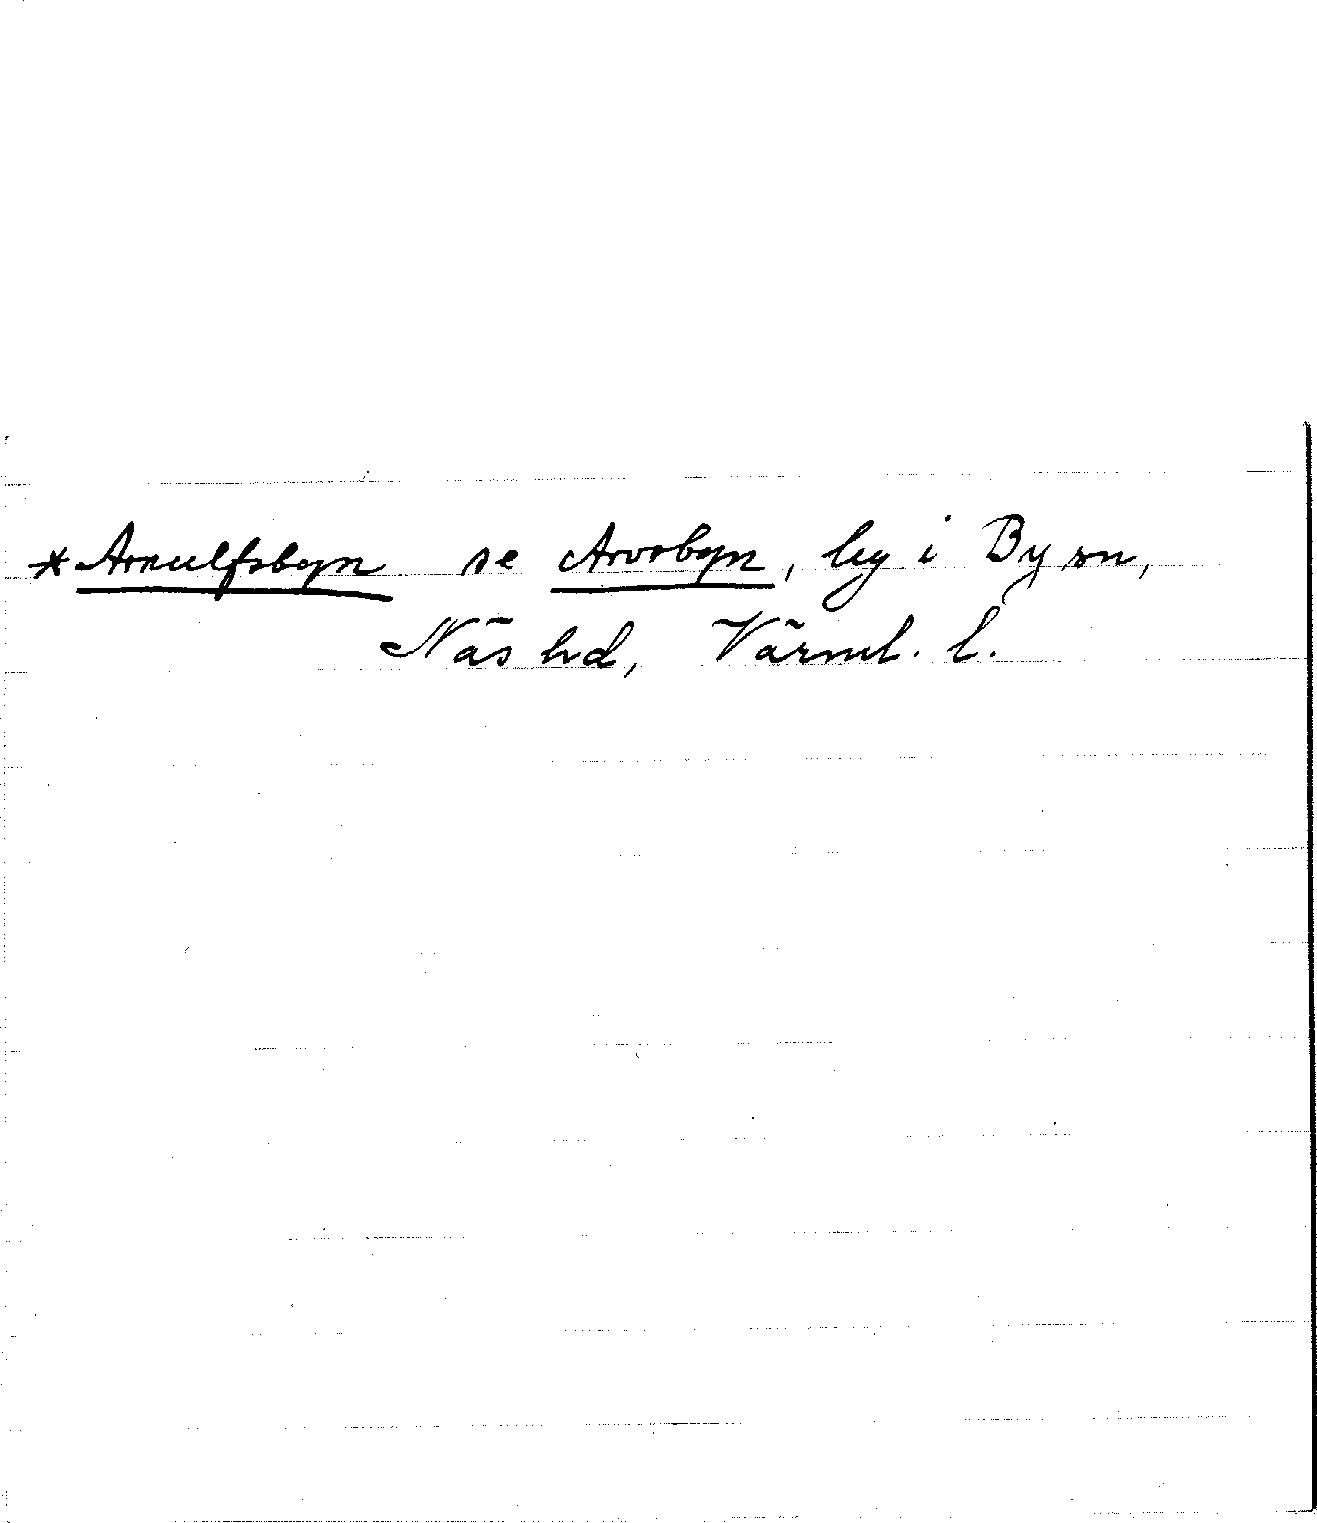 *Arnulfsbyn se Arvobyn, by i By sn,
Näs hd, Värml. l.